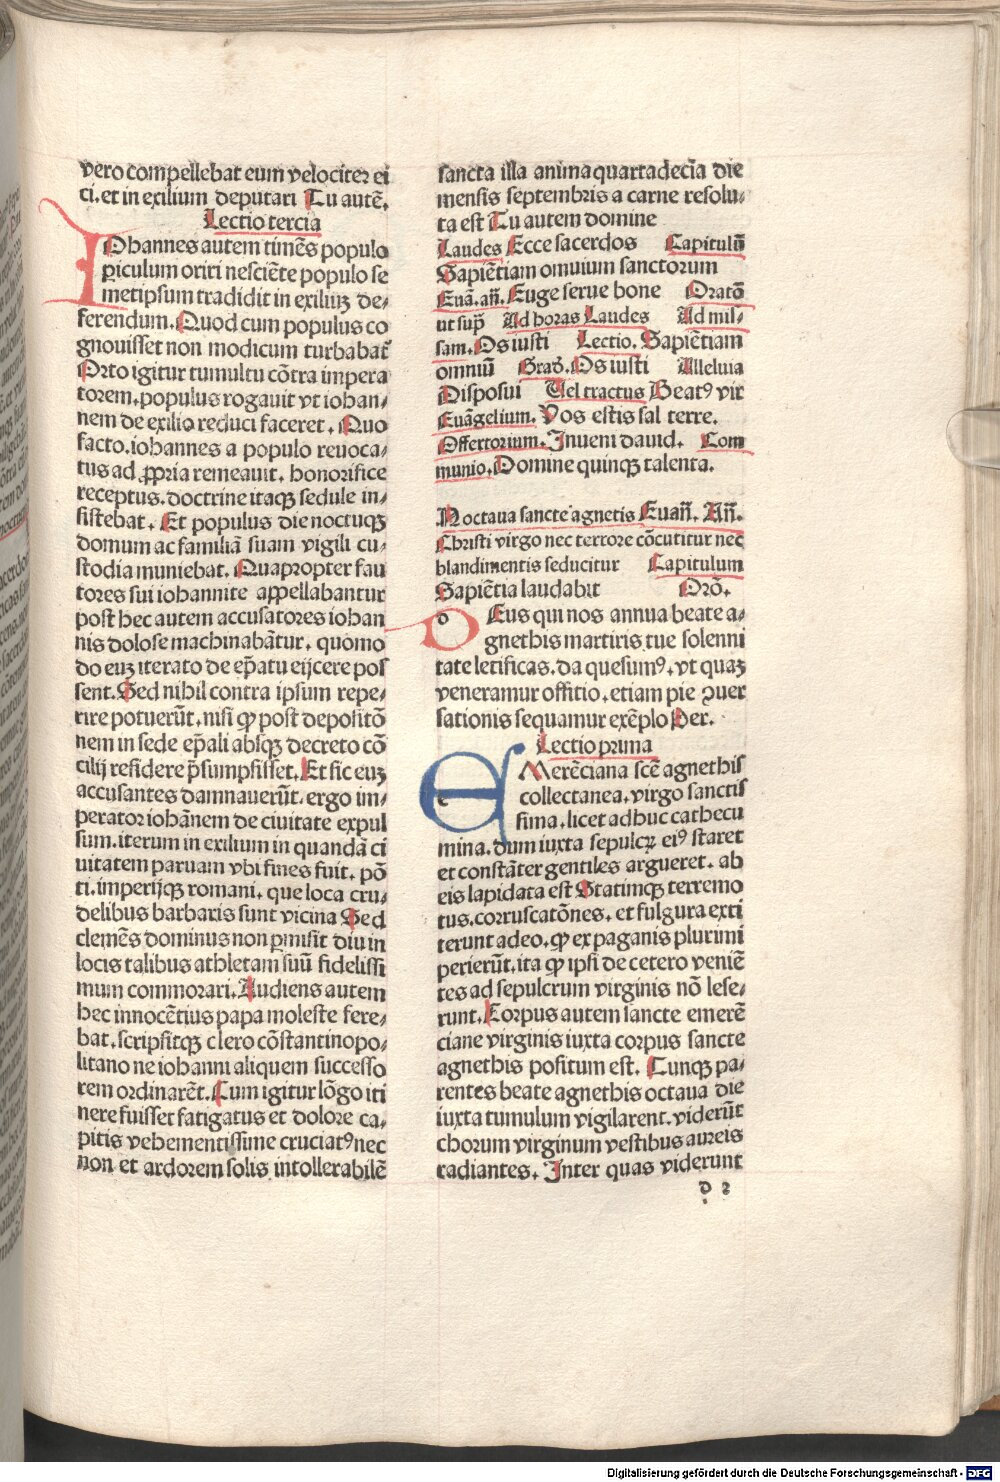 vero compellebat eum velociter ei
ci. et in exilium deputari Tu autē.
Lectio tercia
IOhannes autem timēs populo
piculum oriri nesciēte populo se
metipsum tradidit in exiliuꝫ de⸗
ferendum. Quod cum populus co
gnouisset non modicum turbabat᷑
Orto igitur tumultu cōtra impera
torem. populus rogauit vt iohan⸗
nem de exilio reduci faceret. Quo
facto. iohannes a populo reuoca⸗
tus ad ꝓpria remeauit. honorifice
receptus. doctrine itaqꝫ sedule in⸗
sistebat. Et populus die noctuqꝫ
domum ac familiā suam vigili cu⸗
stodia muniebat. Quapropter fau
tores sui iohannite appellabantur
post hec autem accusatores iohan
nis dolose machinabāntur. quomo
do euꝫ iterato de ep̄atu eijcere pos
sent. Sed nihil contra ipsum repe⸗
rire potuerūt. nisi ꝙ post depositō
nem in sede ep̄ali absqꝫ decreto cō
cilij residere p̄sumpsisset. Et sic euꝫ
accusantes damnauerūt. ergo im⸗
perator iohānem de ciuitate expul
sum. iterum in exilium in quandā ci
uitatem paruam vbi fines fuit. pō
ti. imperijqꝫ romani. que loca cru⸗
delibus barbaris sunt vicina Sed
clemēs dominus non ꝑmisit diu in
locis talibus athletam suū fidelissi
mum commorari. Audiens autem
hec innocētius papa moleste fere⸗
bat. scripsitqꝫ clero cōstantinopo⸗
litano ne iohanni aliquem successo
rem ordinarēt. Cum igitur lōgo iti
nere fuisset fatigatus et dolore ca⸗
pitis vehementissime cruciatꝰ nec
non et ardorem solis intollerabilē
sancta illa anima quarta decīa die
mensis septembris a carne resolu⸗
ta est Tu autem domine
Laudes Ecce sacerdos Capitulū
Sapiētiam omuium sanctorum
Euā. an̄. Euge serue bone Oratō
ut sup̄ Ad horas Laudes Ad mis⸗
sam. Os iusti Lectio. Sapiētiam
omniū Grad. Os iusti Alleluia
Disposui Uel tractus Beatꝰ vir
Euāngelium. Vos estis sal terre.
Offertorium. Inueni dauid. Com
munio. Domine quinqꝫ talenta.
IN octaua sancte agnetis Euan̄. An̄.
Christi virgo nec terrore cōcutitur nec
blandimentis seducitur Capitulum
Sapiētia laudabit Orō.
DEus qui nos annua beate a⸗
gnethis martiris tue solenni
tate letificas. da quesumꝰ. vt quaꝫ
veneramur offitio. etiam pie ꝯuer
sationis sequamur exēplo Per.
Lectio prima
EMerēciana scē agnethis
collectanea. virgo sanctis
sima. licet adhuc cathecu
mina. dum iuxta sepulcꝝ eiꝰ staret
et constāter gentiles argueret. ab
eis lapidata est Statimqꝫ terremo
tus. corruscatōnes. et fulgura exti
terunt adeo. ꝙ ex paganis plurimi
perierūt. ita ꝙ ipsi de cetero veniē
tes ad sepulcrum virginis nō lese⸗
runt. Corpus autem sancte emerē
ciane virginis iuxta corpus sancte
agnethis positum est. Cunqꝫ pa⸗
rentes beate agnethis octaua die
iuxta tumulum vigilarent. viderūt
chorum virginum vestibus aureis
radiantes. Inter quas viderunt
d 2
Digitalisierung gefördert durch die Deutsche Forschungsgemeinschaft - DFG